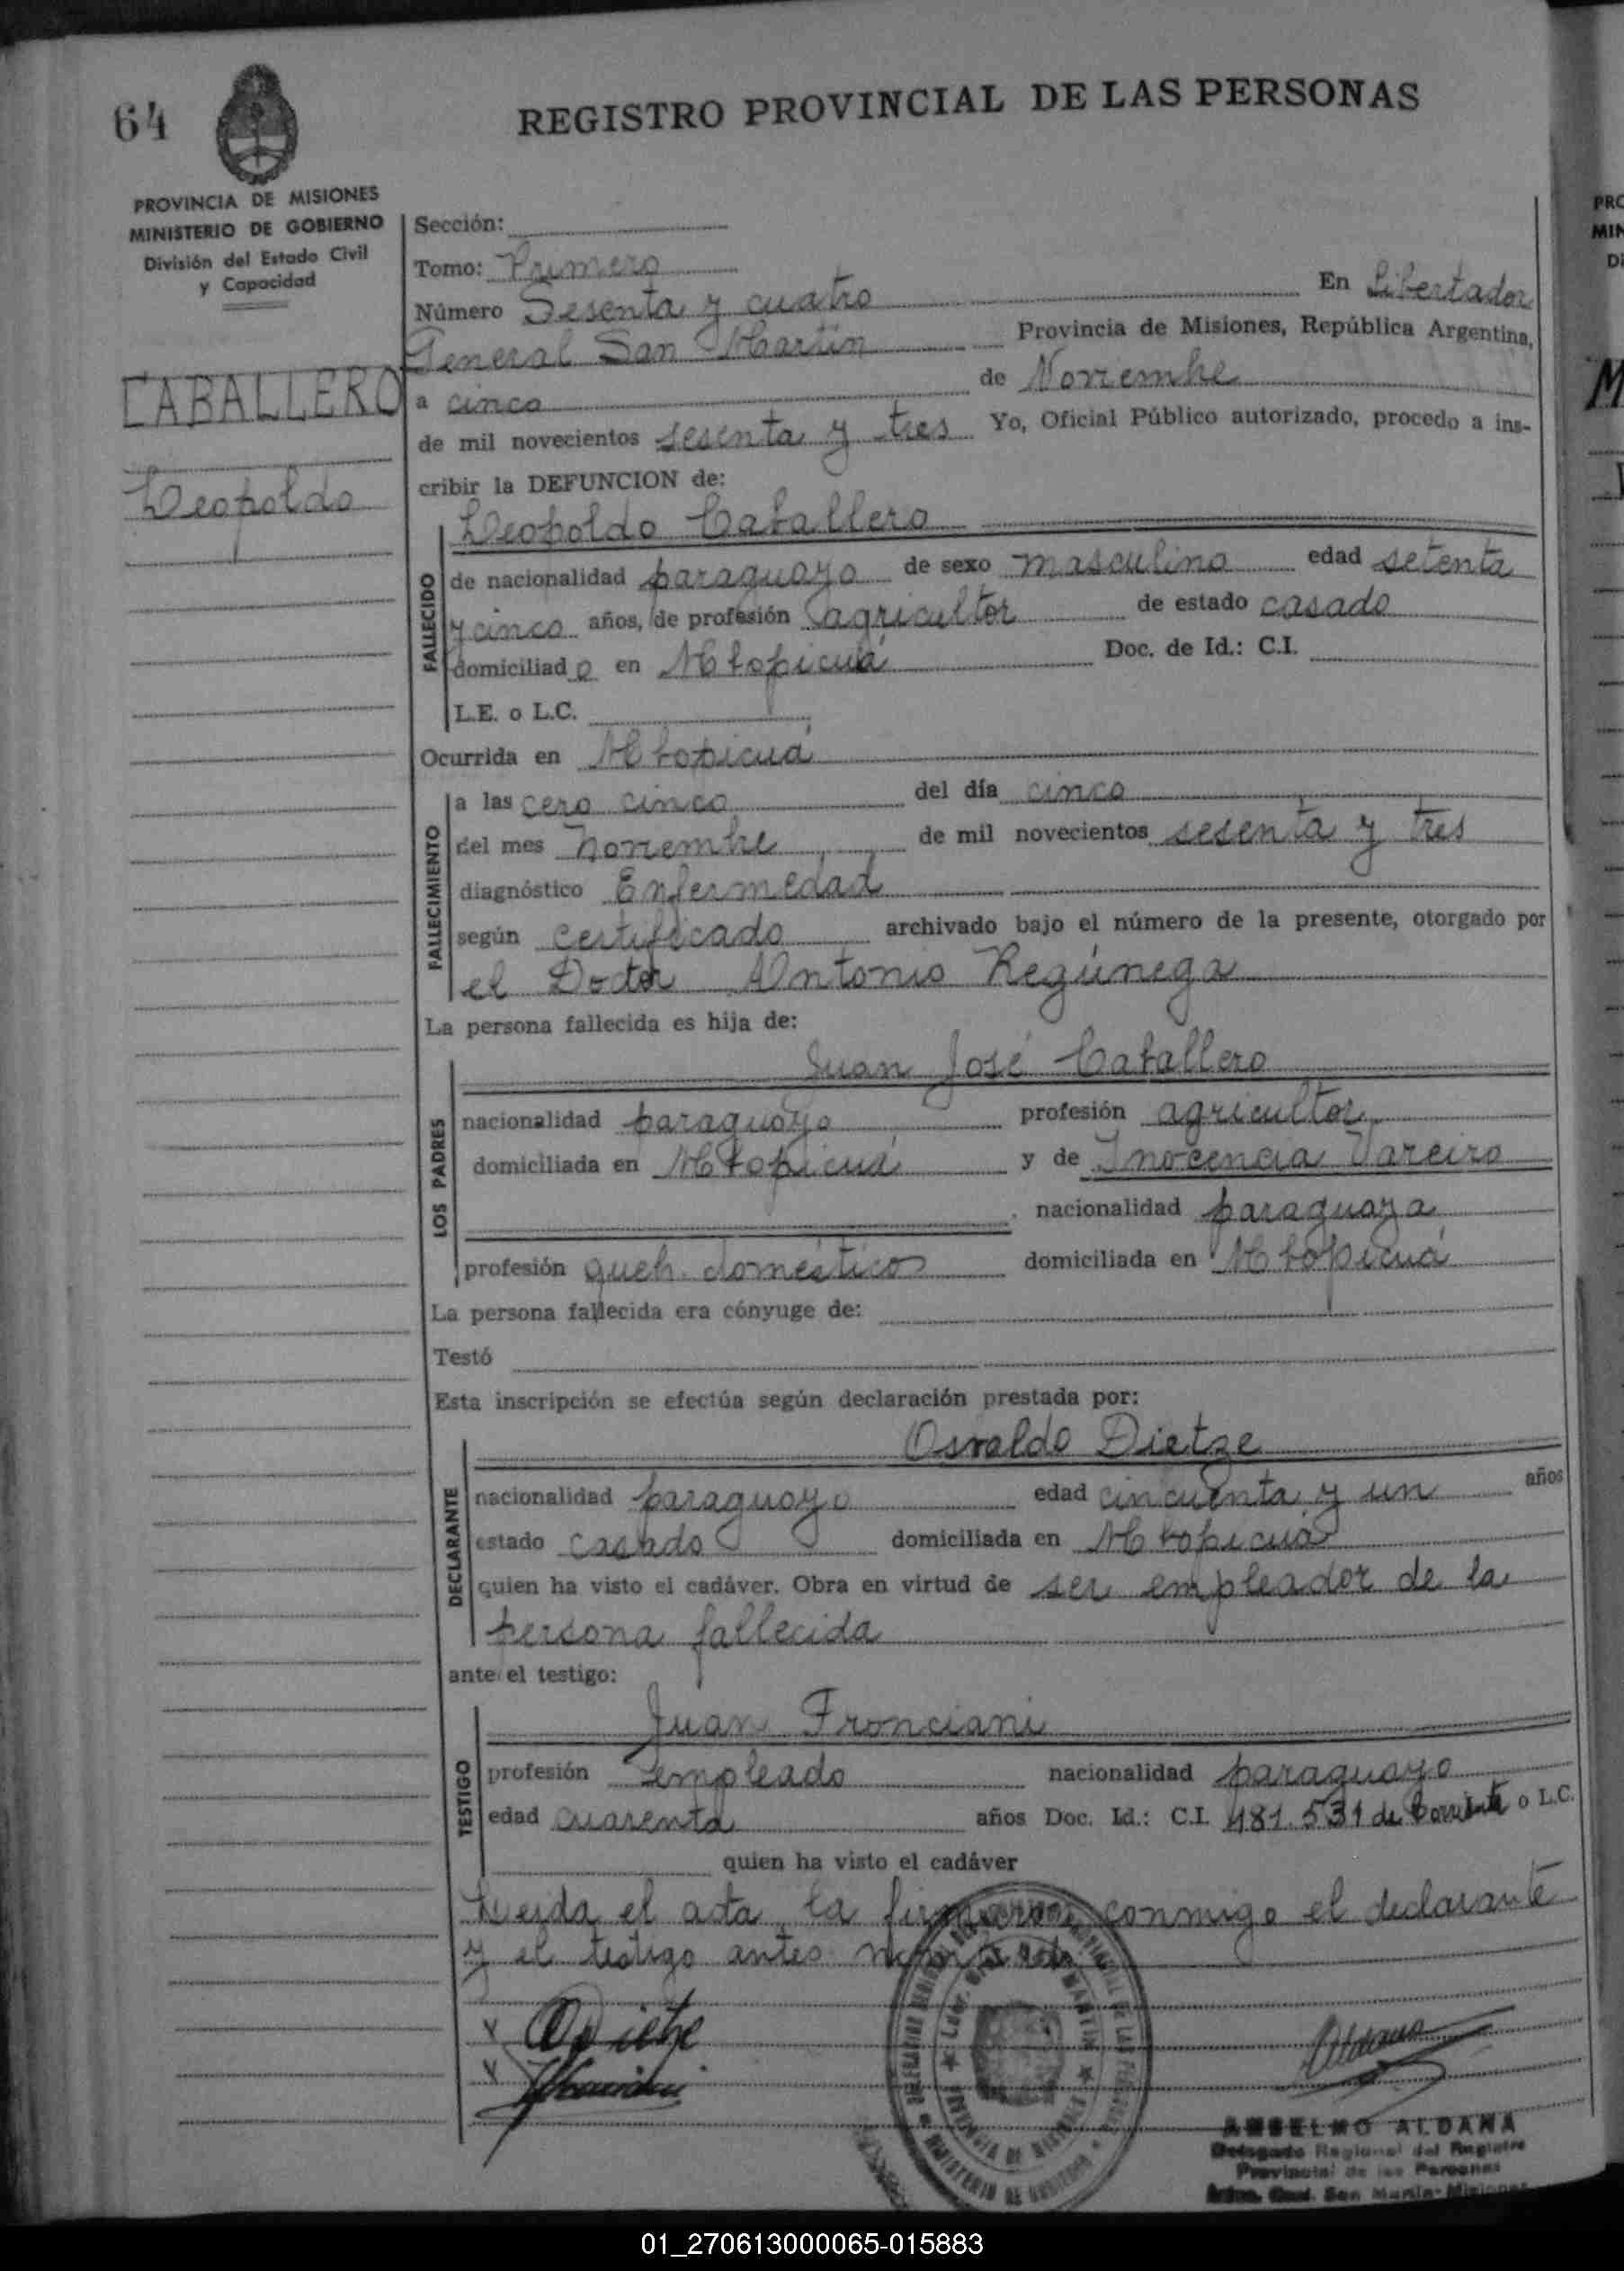 64
REGISTRO PROVINCIAL DE LAS PERSONAS
PROVINCIA DE MISIONES
MINISTERIO DE GOBIERNO
División del Estado Civil
y Capacidad
CABALLERO
Leopoldo
Sección:
Tomo: Primero
Número Sesenta y cuatro En Libertador
General San Martín Provincia de Misiones, República Argentina,
a cinco de Noviembre
de mil novecientos sesenta y tres Yo, Oficial Público autorizado, procedo a ins-
cribir la DEFUNCION de:
Leopoldo Caballero
FALLECIDO
de nacionalidad paraguayo de sexo masculino edad setenta
y cinco años, de profesión agricultor de estado casado
domiciliado en Mbopicuá Doc. de Id.: C.I.
L.E. o L.C.
Ocurrida en Mbopicuá
FALLECIMIENTO
a las cero cinco del día cinco
del mes noviembre de mil novecientos sesenta y tres
diagnóstico Enfermedad
según certificado archivado bajo el número de la presente, otorgado por
el Doctor Antonio Regúnega
La persona fallecida es hija de:
LOS PADRES
Juan José Caballero
nacionalidad paraguayo profesión agricultor
domiciliada en Mbopicuá y de Inocencia Vareiro
nacionalidad paraguaya
profesión queh. domésticos domiciliada en Mbopicuá
La persona fallecida era cónyuge de:
Testó
Esta inscripción se efectúa según declaración prestada por:
DECLARANTE
Osvaldo Dietze
nacionalidad paraguayo edad cincuenta y un años
estado casado domiciliada en Mbopicuá
quien ha visto el cadáver. Obra en virtud de ser empleador de la
persona fallecida
ante el testigo:
TESTIGO
Juan Fronciani
profesión empleado nacionalidad paraguayo
edad cuarenta años Doc. Id.: C.I. 481.531 de Corrientes o L.C.
quien ha visto el cadáver
Leída el acta, la firmaron conmigo el declarante
y el testigo antes
ODietze
ANSELMO ALDANA
Delegado Regional del Registro
Provincial de las Personas
Gral. San Martín- Misiones
01_270613000065-015883